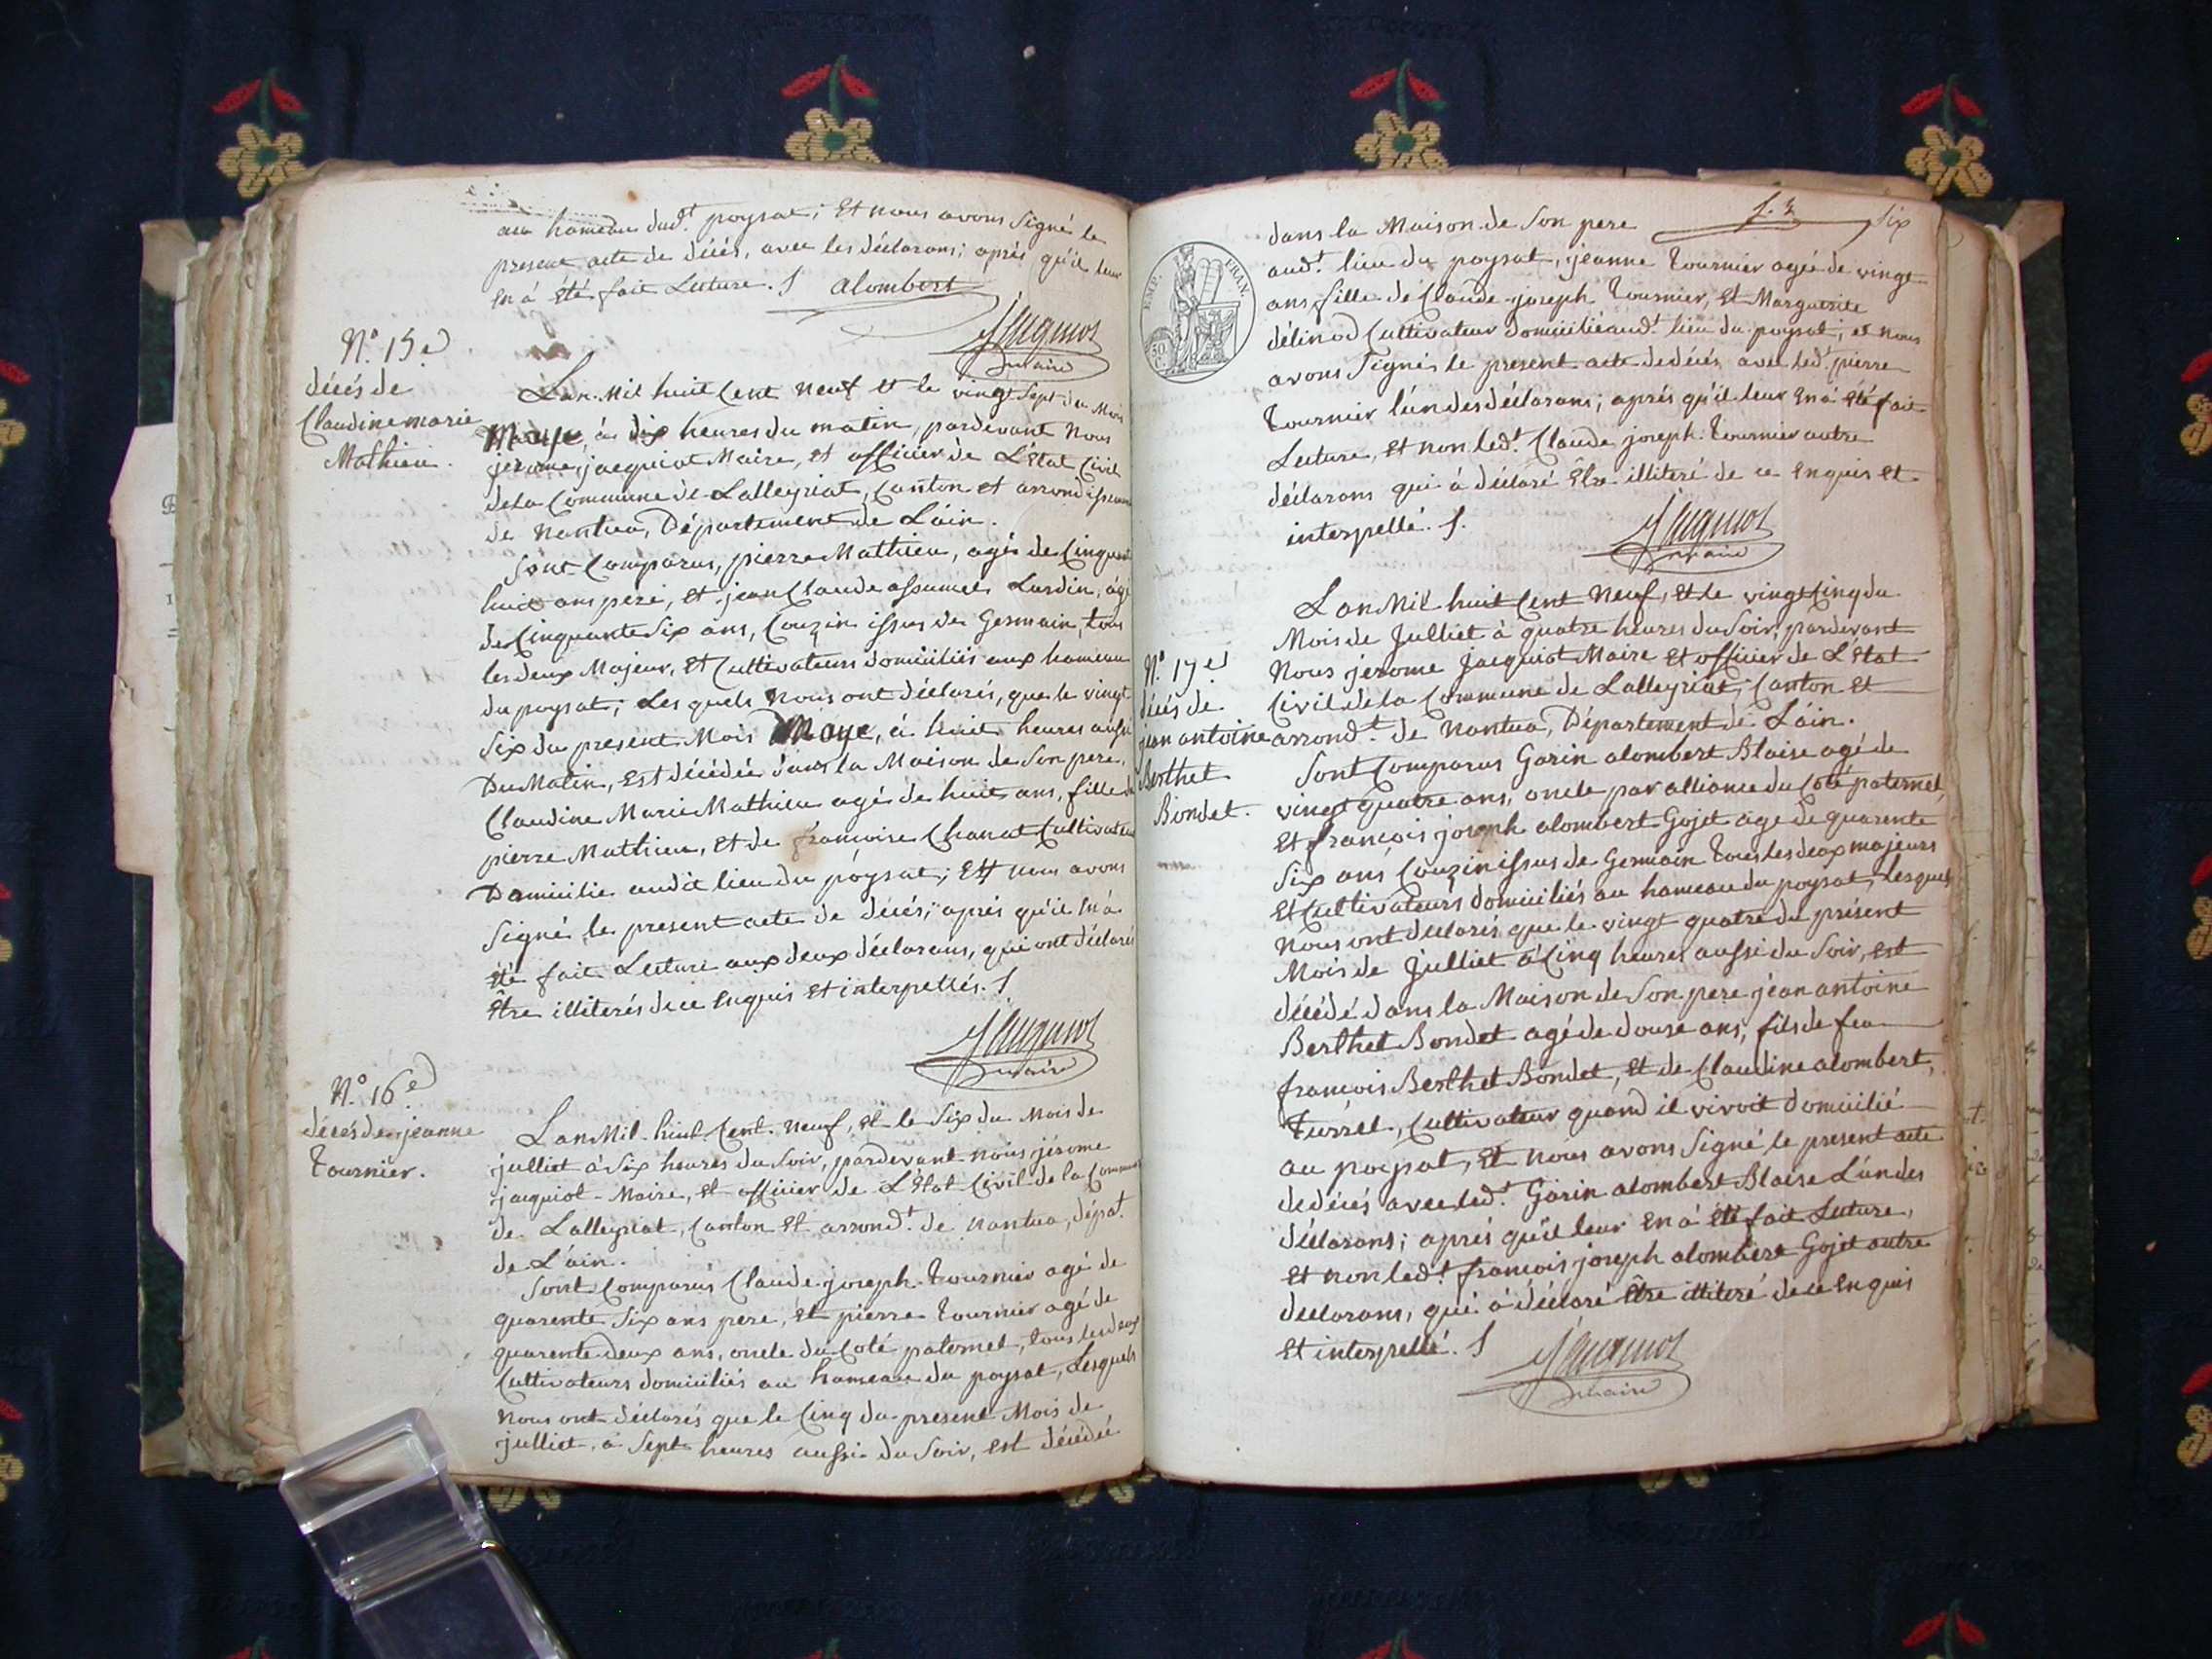 au hameau dud.t poysat; Et nous avons Signé le
present acte de décès, avec les déclarans; après qu'il leur
En à Eté fait Lecture. S alombert
Jacquiot
maire
N.o 15.e
décés de
Claudine marie
Mathieu.
L'an Mil huit Cent Neuf et le vingt Sept du Mois
Maye, à dix heures du matin, pardevant Nous
jerome jacquiot Maire, et officier de L'Etat Civil
de la Commune de Lalleyriat, Canton et arrondissement
de Nantua, Département de L'áin.
Sont Comparus, pierre Mathieu, agés de Cinquante
huit ans pere, et jean Claude assumel Lurdin, agé
de Cinquante Six ans, Couzin issus de Germain, tous
les deux Majeur, Et Cultivateurs domiciliés aux hameau
du poysat; Les quels Nous ont déclarés, que le vingt
Six du present Mois Maye, à huit heures aussi
Du Matin, est décédée dans la Maison de Son pere,
Claudine Marie Mathieu agé de huit ans, fille de
pierre Mathieu, Et de françoise Chanat Cultivateur
Domicilie audit lieu du poysat; Et nous avons
Signé le present acte de décés; aprés qu'il En à
Eté fait Lecture aux deux déclarans, qui ont déclarés
Etre illiterés de ce Enquis et interpellés. S
Jacquiot
maire
N.o 16.e
décés de jeanne
Tournier.
L'an Mil huit Cent Neuf, Et le Six du Mois de
julliet à Six heures du Soir, pardevant nous jérome
jacquiot Maire, Et officier de L'Etat Civil de la Commune
de Lalleyriat, Canton Et arrond.t de Nantua, dépat.
de L'ain.
Sont Comparus Claude joseph Tournier agé de
quarente Six ans pere, Et pierre Tournier agé de
quarente deux ans, oncle du Coté paternel, tous les deux
Cultivateurs domiciliés au hameau du poysat, Lesquels
Nous ont déclarés que le Cinq du present Mois de
julliet, à Sept heures aussi du Soir, est décédée
six
dans la Maison de Son pere
aud.t lieu du poysat, jeanne Tournier agée de vingt
ans, fille de Claude joseph Tournier, Et Marguerite
délinod Cultivateur domicilié aud.t lieu du poysat, et nous
avons Signés le present acte de décés avec led.t pierre
Tournier l'un des déclarans; aprés qu'il leur En á Eté fait
Lecture, Et non led.t Claude joseph Tournier autre
déclarans qui à déclaré Etre illiteré de ce Enquis et
interpellé. S.
Jacquiot
maire
EMP. FRAN.
50
C.
N.o 17.e
décés de
jean antoine
Berthet
Bondet.
L'an Mil huit Cent Neuf, Et le vingt Cinq du
Mois de Julliet à quatre heures du Soir, pardevant
Nous jerome jacquiot Maire Et officier de L'Etat
Civil de la Commune de Lalleyriat, Canton Et
arrond.t de Nantua, Département de L'áin.
Sont Comparus Garin alombert Blaise agé de
vingt quatre ans, oncle par alliance du Coté paternel,
Et françois joseph alombert Gojet agé de quarente
Six ans Couzin issus de Germain Tous les deux majeurs
Et Cultivateurs domiciliés au hameau du poysat, Lesquels
Nous ont déclarés que le vingt quatre du présent
Mois de Julliet à Cinq heures aussi du Soir, est
décédé dans la Maison de Son pere jean antoine
Berthet Bondet agé de douse ans, fils de feu
françois Berthet Bondet, Et de Claudine alombert,
Turrel, Cultivateur quand il vivoit domicilié
au poysat, Et nous avons Signé le present acte
de décés avec led.t Garin alombert Blaise L'un des
déclarans; aprés qu'il leur En á Eté fait Lecture,
Et non led.t françois joseph alombert Gojet autre
déclarans, qui à déclaré Etre illiteré de ce Enquis
Et interpellé. S
Jacquiot
maire